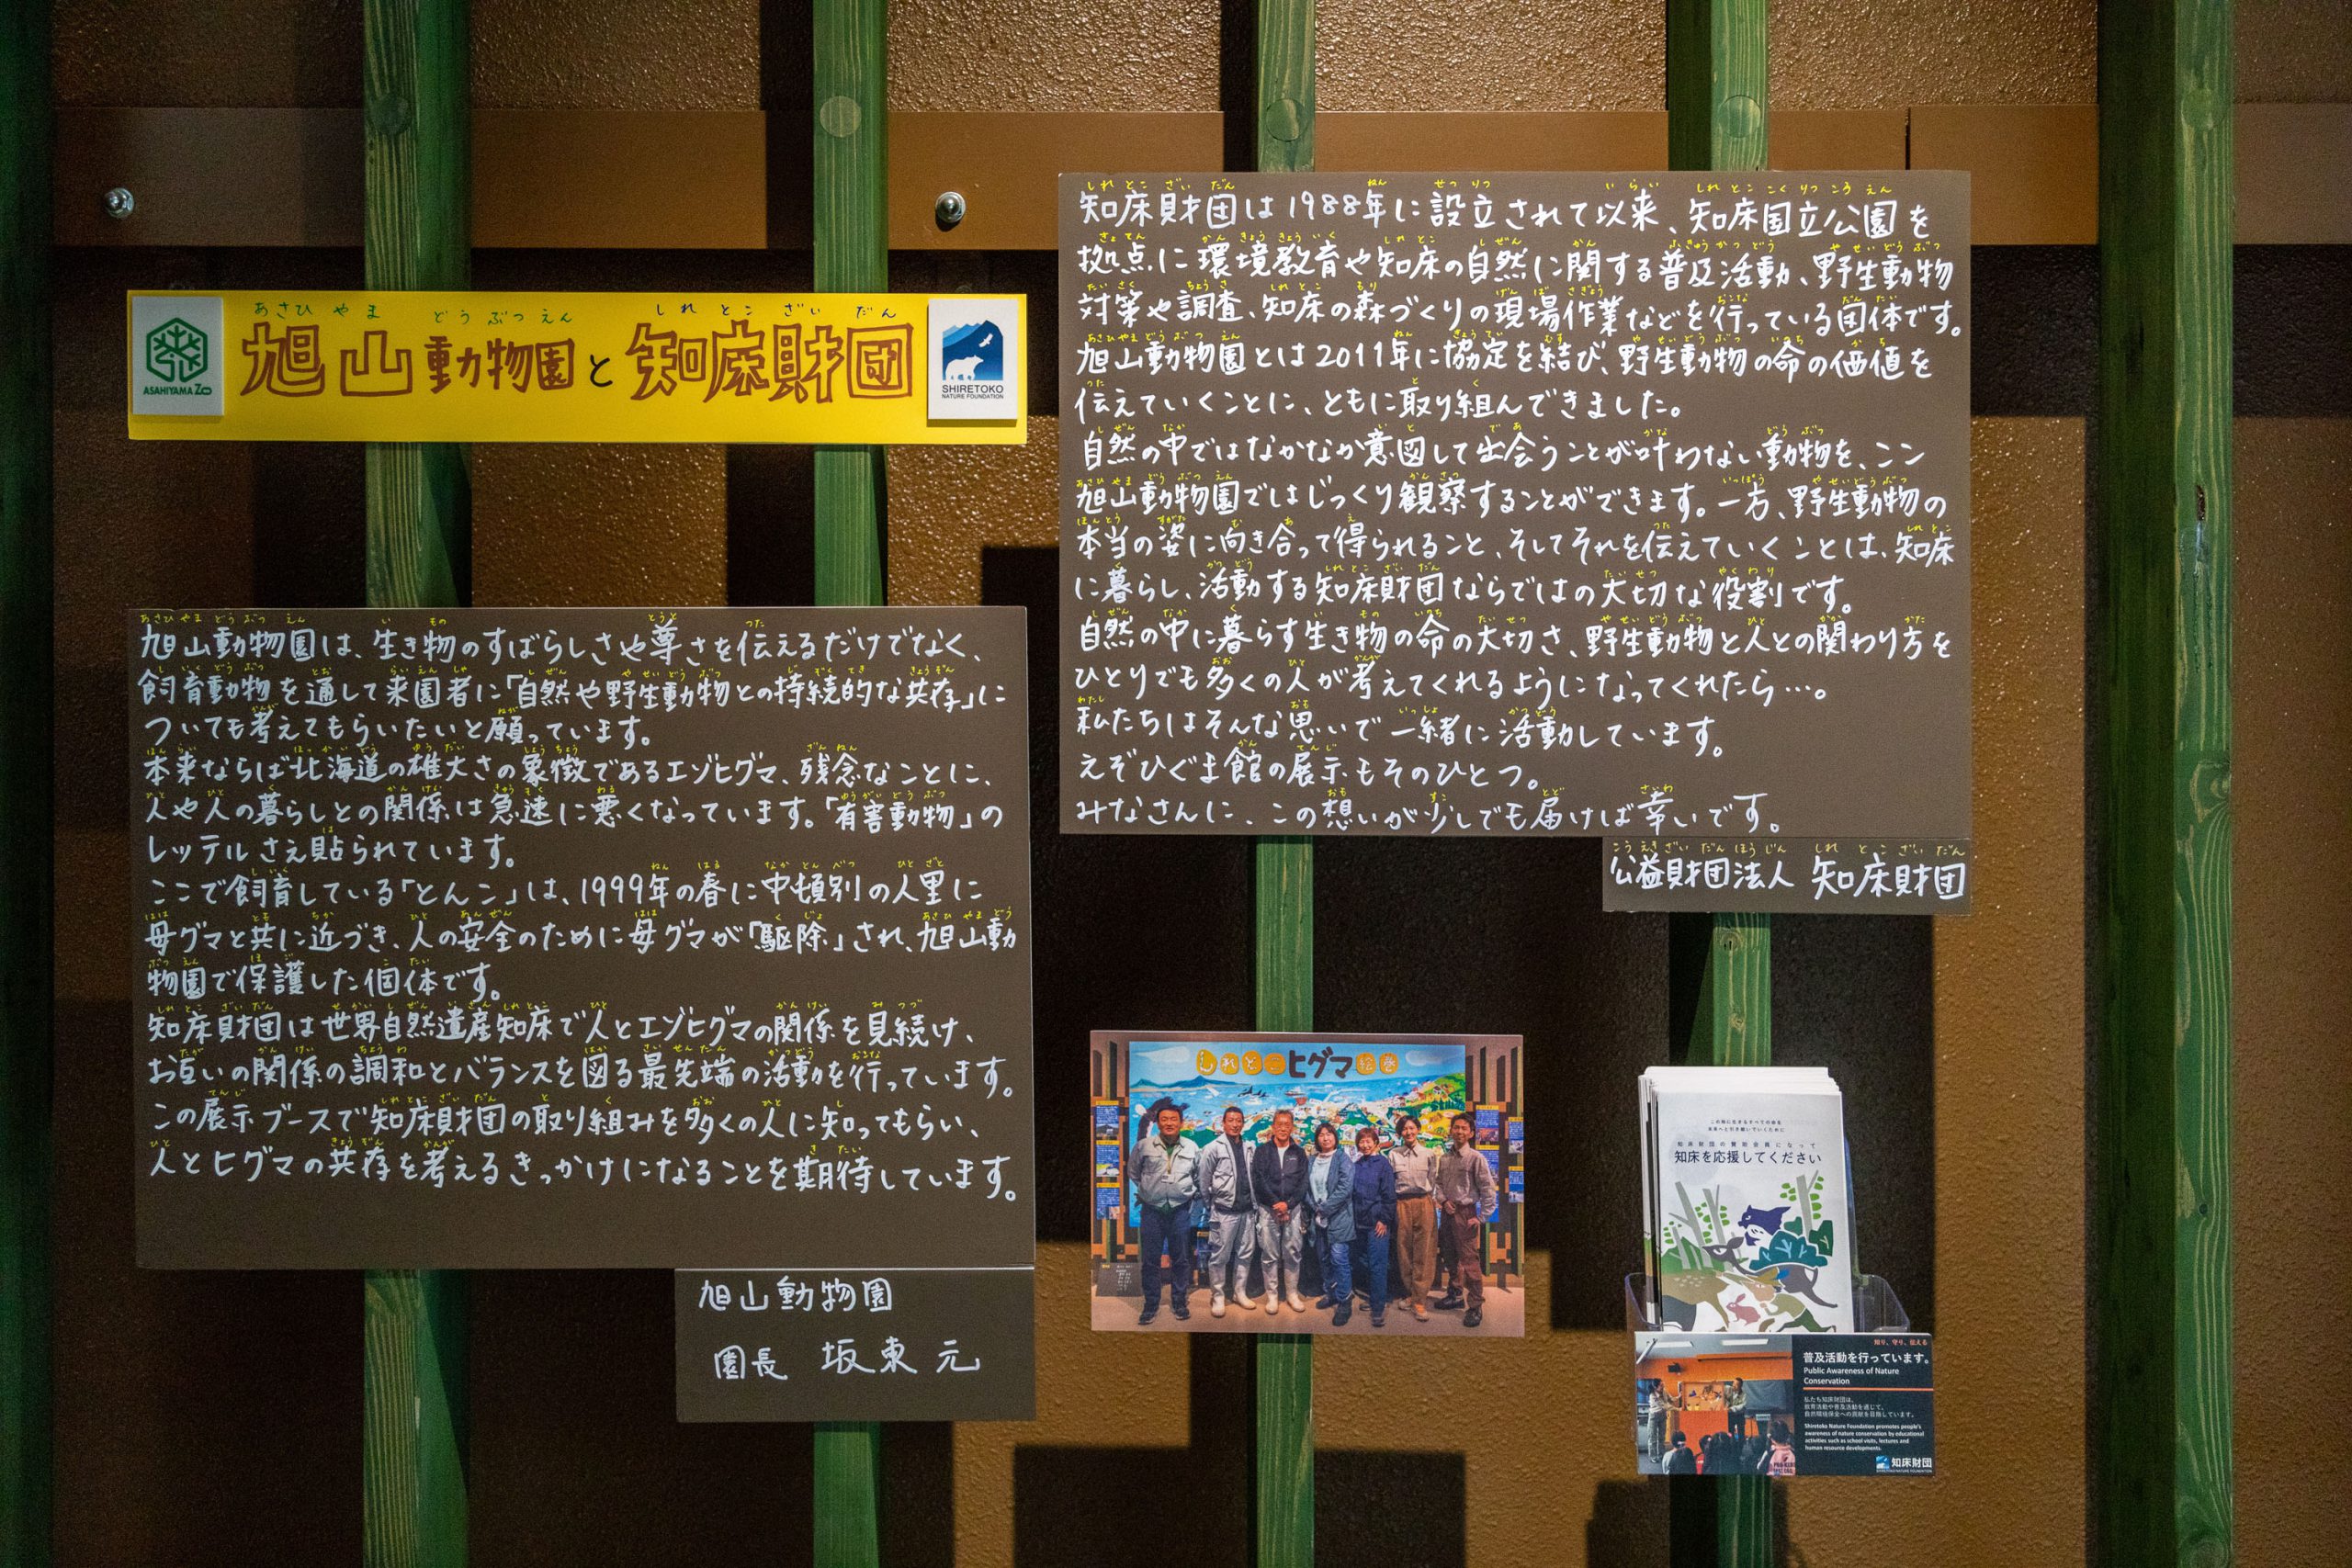 あさひ やま どうぶつえん しれとこざいだん
旭山動物園と知床財団
ASAHIYAMA Zoo
SHIRETOKO
NATURE FOUNDATION
旭山動物園は、生き物のすばらしさや尊さを伝えるだけでなく、
飼育動物を通して来園者に「自然や野生動物との持続的な共存」に
ついても考えてもらいたいと願っています。
本来ならば北海道の雄大さの象徴であるエゾヒグマ、残念なことに、
人や人の暮らしとの関係は急速に悪くなっています。「有害動物」の
レッテルさえ貼られています。
ここで飼育している「とんこ」は、1999年の春に中頓別の人里に
母グマと共に近づき、人の安全のために母グマが「駆除」され、旭山動
物園で保護した個体です。
知床財団は世界自然遺産知床で人とエゾヒグマの関係を見続け、
お互いの関係の調和とバランスを図る最先端の活動を行っています。
この展示ブースで知床財団の取り組みを多くの人に知ってもらい、
人とヒグマの共存を考えるきっかけになることを期待しています。
旭山動物園
園長 坂東 元
知床財団は1988年に設立されて以来、知床国立公園を
拠点に環境教育や知床の自然に関する普及活動、野生動物
対策や調査、知床の森づくりの現場作業などを行っている団体です。
旭山動物園とは2011年に協定を結び、野生動物の命の価値を
伝えていくことに、ともに取り組んできました。
自然の中ではなかなか意図して出会うことが叶わない動物を、ここ
旭山動物園ではじっくり観察することができます。一方、野生動物の
本当の姿に向き合って得られること、そしてそれを伝えていくことは、知床
に暮らし、活動する知床財団ならではの大切な役割です。
自然の中に暮らす生き物の命の大切さ、野生動物と人との関わり方を
ひとりでも多くの人が考えてくれるようになってくれたら…。
私たちはそんな思いで一緒に活動しています。
えぞひぐま館の展示もそのひとつ。
みなさんに、この想いが少しでも届けば幸いです。
公益財団法人 知床財団
しれとこヒグマ絵巻
この地に生きるすべての命を
未来へと引き継いでいくために
知床財団の賛助会員になって
知床を応援してください
知り、守り、伝える
普及活動を行っています。
Public Awareness of Nature
Conservation
私たち知床財団は、
教育活動や普及活動を通じて、
自然環境保全への貢献を目指しています。
Shiretoko Nature Foundation promotes people's
awareness of nature conservation by educational
activities such as school visits, lectures and
human resource developments.
知床財団
SHIRETOKO NATURE FOUNDATION